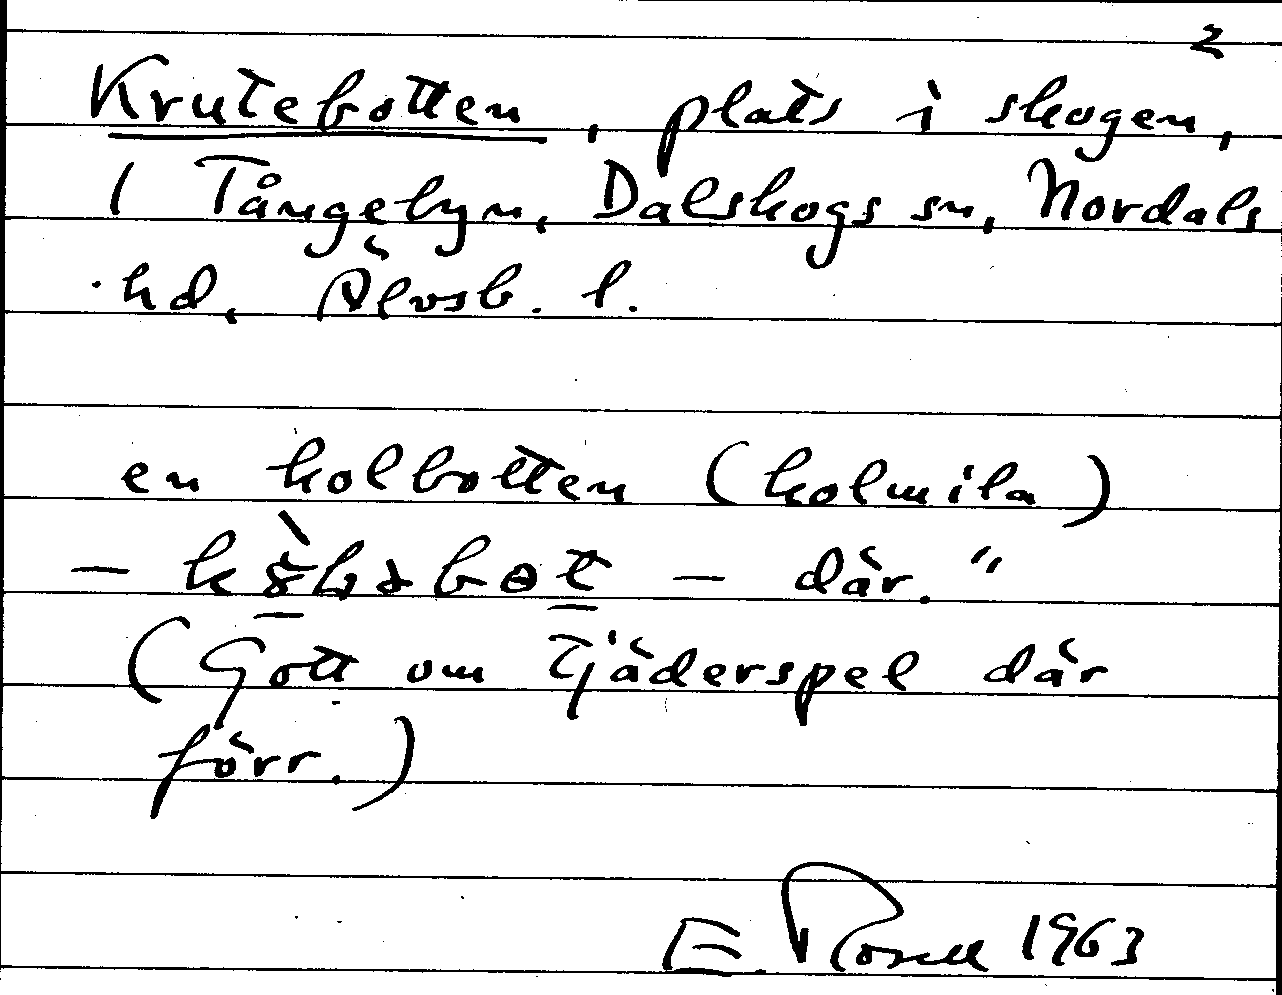 2
Krutebotten, plats i skogen,
1 Tångebyn, Dalskogs sn, Nordals
hd, Älvsb. l.
en kolbotten (kolmila)
– – där."
(Gott om Tjäderspel där
förr.)
E. Rosell 1963